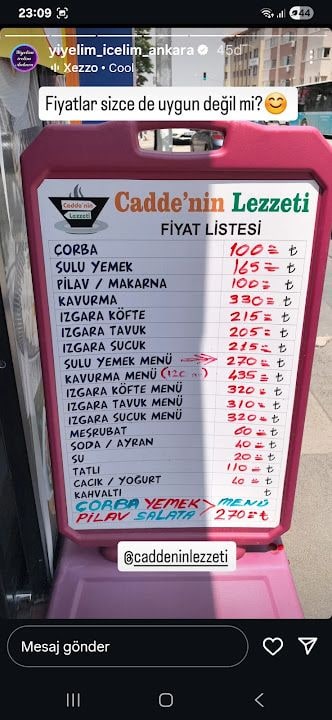 23:09
44
yiyelim_icelim_ankara 45d
Xezzo • Cool
Fiyatlar sizce de uygun değil mi?😊
Cadde'nin Lezzeti
Cadde'nin Lezzeti
FİYAT LİSTESİ
ÇORBA 100= ₺
SULU YEMEK 165= ₺
PİLAV / MAKARNA 100= ₺
KAVURMA 330= ₺
IZGARA KÖFTE 215= ₺
IZGARA TAVUK 205= ₺
IZGARA SUCUK 215= ₺
SULU YEMEK MENÜ → 270= ₺
KAVURMA MENÜ (120 gr) 435= ₺
IZGARA KÖFTE MENÜ 320= ₺
IZGARA TAVUK MENÜ 310= ₺
IZGARA SUCUK MENÜ 320= ₺
MEŞRUBAT 60= ₺
SODA / AYRAN 40= ₺
SU 20= ₺
TATLI 110= ₺
CACIK / YOĞURT 40= ₺
KAHVALTI ₺
ÇORBA YEMEK > MENÜ
PİLAV SALATA 270=₺
@caddeninlezzeti
Mesaj gönder